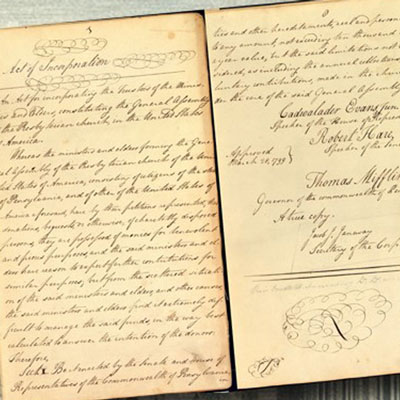 Act of Incorporation
An Act for incorporating the Trustees of the Minis-
ters and Elders, constituting the General Assembly
of the Presbyterian church, in the United States
of America.
Whereas the ministers and elders forming the Gene-
ral Assembly of the Presbyterian church of the United
States of America, consisting of citizens of the state
of Pennsylvania, and of other of the United States of
America aforesaid, have by their petition represented, that
donations, bequests, or otherwise, of charitably disposed
persons, they are possessed of monies for benevolent
and pious purposes, and the said ministers and el-
ders have reason to expect farther contributions for
similar purposes; but from the scattered situati-
on of the said ministers and elders, and other causes,
the said ministers and elders find it extremely dif-
ficult to manage the said funds, in the way best
calculated to answer the intention of the donors:
Therefore,
Sect. 1. Be it enacted by the Senate and House of
Representatives of the Commonwealth of Pennsylvania,
ties and other hereditaments, real and personal
to any amount, not exceeding ten thousand
a year value, but the said limitations not
sidered, as including the annual collections
luntary contributions, made in the churches
der the care of the said General Assembly.
Cadwalader Evans, jun
Speaker of the House of Represe
Robert Hare,
Speaker of the Sena
Approved
March 28, 1799
Thomas Mifflin
Governor of the commonwealth of Penn
A true copy.
Jacob J. Janeway
Secretary of the Corp